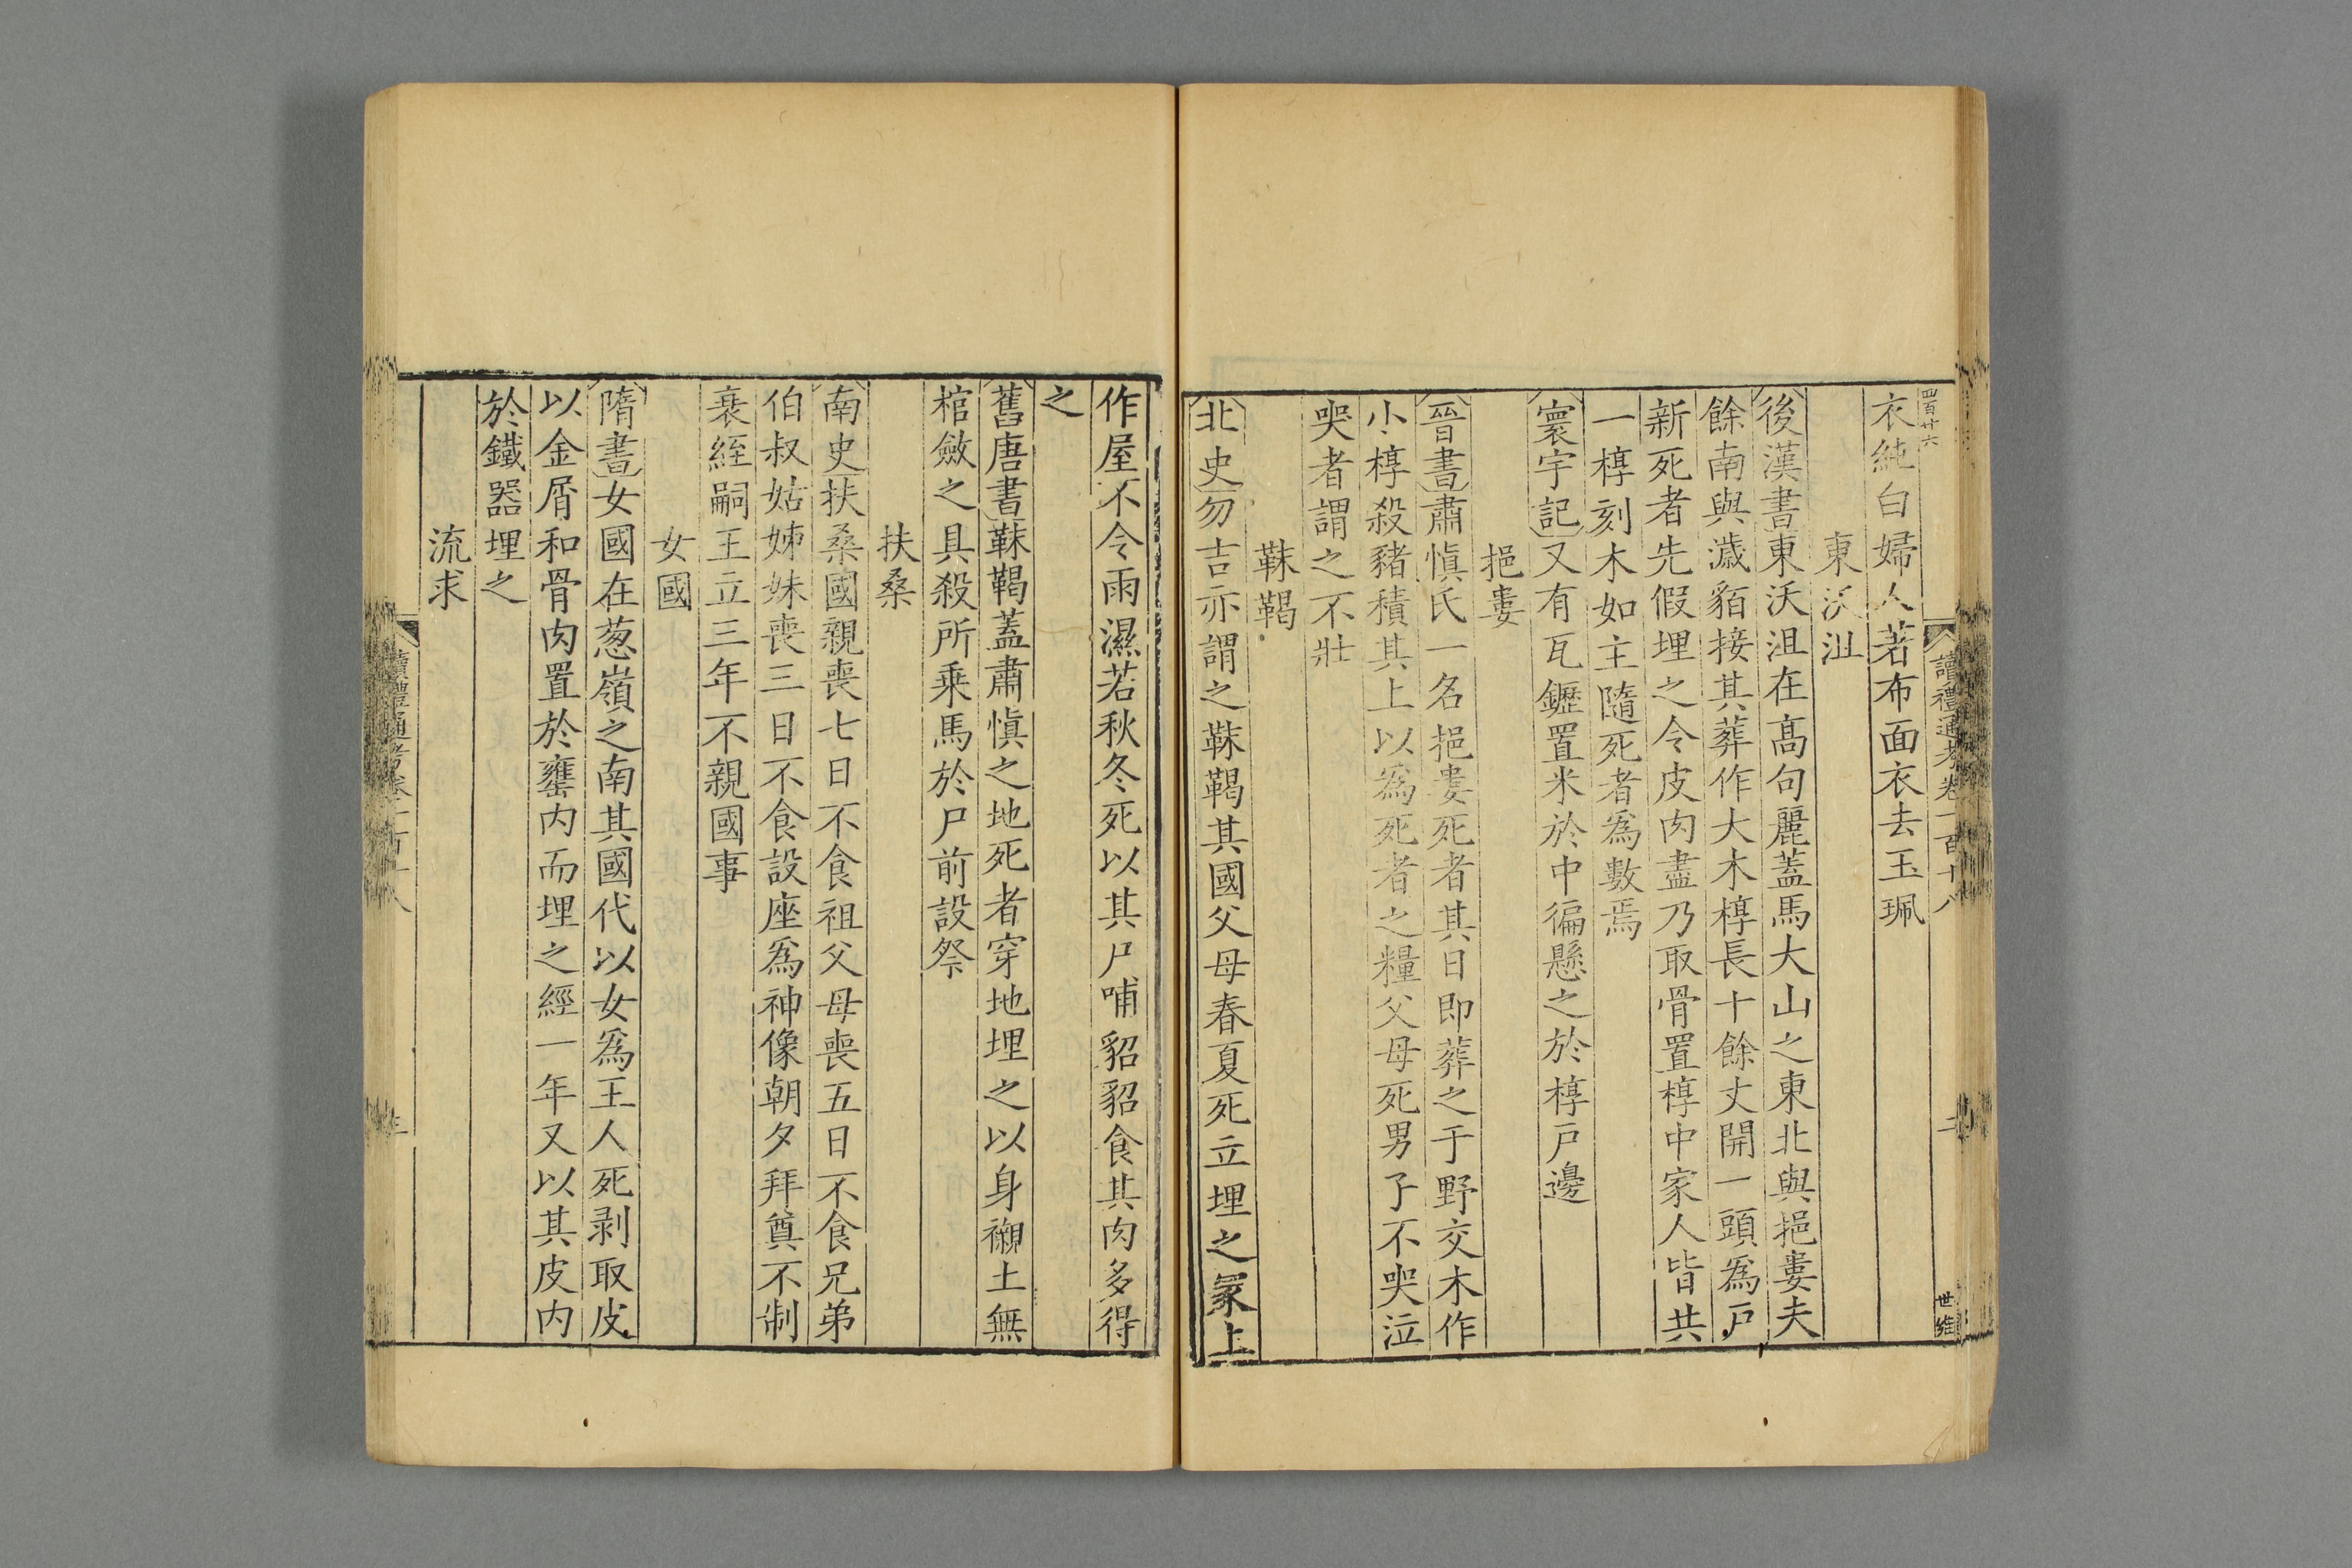 四百廿六
讀禮通考卷一百十八
世維
衣純白婦人著布面衣去玉珮
東沃沮
後漢書東沃沮在高句麗蓋馬大山之東北與挹婁夫
餘南與濊貊接其葬作大木椁長十餘丈開一頭爲戸
新死者先假埋之令皮肉盡乃取骨置椁中家人皆共
一椁刻木如主隨死者爲數焉
寰宇記又有瓦䥶置米於中徧懸之於椁戸邊
挹婁
晉書肅愼氏一名挹婁死者其日即葬之于野交木作
小椁殺豬積其上以爲死者之糧父母死男子不哭泣
哭者謂之不壯
靺鞨
北史勿吉亦謂之靺鞨其國父母春夏死立埋之冢上
作屋不令雨濕若秋冬死以其尸哺貂貂食其肉多得
之
舊唐書靺鞨蓋肅愼之地死者穿地埋之以身襯土無
棺斂之具殺所乘馬於尸前設祭
扶桑
南史扶桑國親喪七日不食祖父母喪五日不食兄弟
伯叔姑姊妹喪三日不食設座爲神像朝夕拜奠不制
衰絰嗣王立三年不親國事
女國
隋書女國在葱嶺之南其國代以女爲王人死剥取皮
以金屑和骨肉置於甕内而埋之經一年又以其皮内
於鐵器埋之
流求
讀禮通考卷一百十八